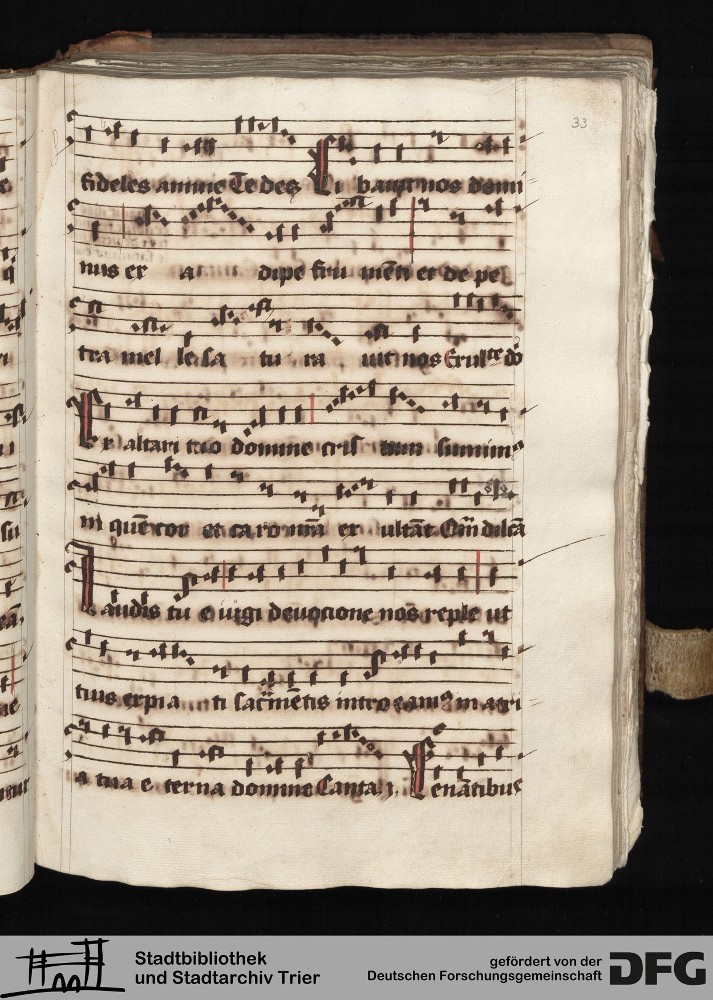 33
fideles anime Te dec Cibauit nos domi
nus ex a dipe fru mēti et de pe
tra mel le sa tu ra uit nos Exulte do
Ex altari tuo domine cris tum sumimꝰ
in quē cor et caro nr̄a ex ultāt Qm̄ dilcā
Laudis tu e uigi deuocione nos reple ut
tius expia ti sac̄mētis introeamꝰ in atri
a tua e terna domine Canta
enātibus
Stadtbibliothek
und Stadtarchiv Trier
gefördert von der
Deutschen Forschungsgemeinschaft
DFG